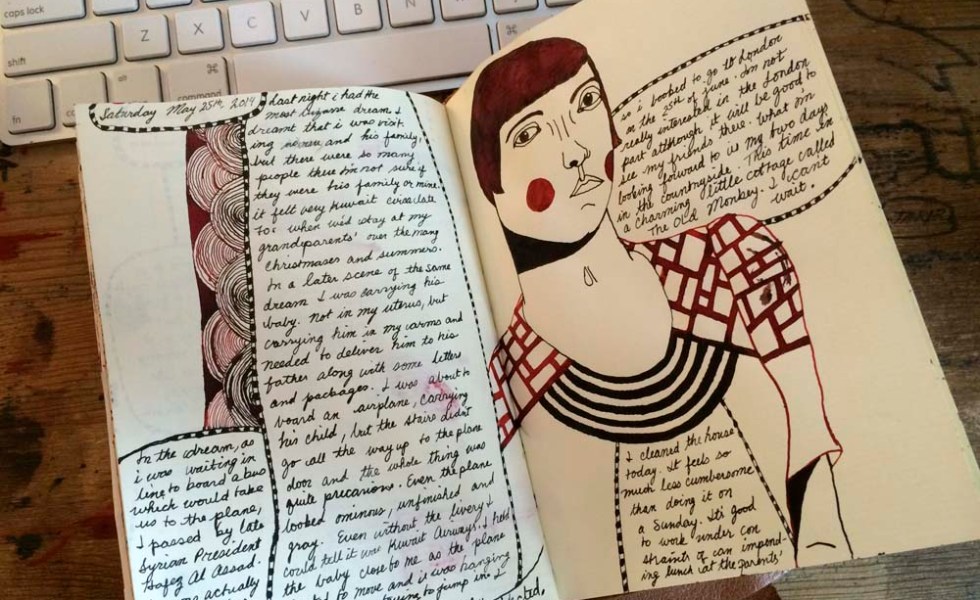 caps lock
shift
fn
command
⌘
Z
X
C
V
B
N
M
⌘
Saturday May 25th, 2019
Last night i had the
most bizarre dream. I
dreamt that i was visit
ing and his family,
but there were so many
people there i'm not sure if
they were his family or mine.
it felt very Kuwait circa late
70s when we'd stay at my
grandparents' over the many
Christmases and summers.
In a later scene of the same
dream I was carrying his
baby. Not in my uterus, but
carrying him in my arms and
needed to deliver him to his
father along with some letters
and packages. I was about to
board an airplane, carrying
his child, but the stairs didn't
go all the way up to the plane
door and the whole thing was
quite precarious. Even the plane
looked ominous, unfinished and
gray. Even without the livery I
could tell it was Kuwait Airways. I held
the baby close to me as the plane
to move and it was hanging
trying to jump in. I
In the dream, as
i was waiting in
line to board a bus
which would take
us to the plane,
I passed by late
Syrian President
Hafez Al Assad.
actually
i booked to go to London
on the 25th of june. I'm not
really interested in the London
part although it will be good to
see my friends there. What i'm
looking forward to is my two days
in the countryside. This time in
a charming little cottage called
The Old Monkey. I can't
wait.
I cleaned the house
today. It feels so
much less cumbersome
than doing it on
a Sunday. It's good
to work under con
straints of an impend-
ing lunch at the parents'